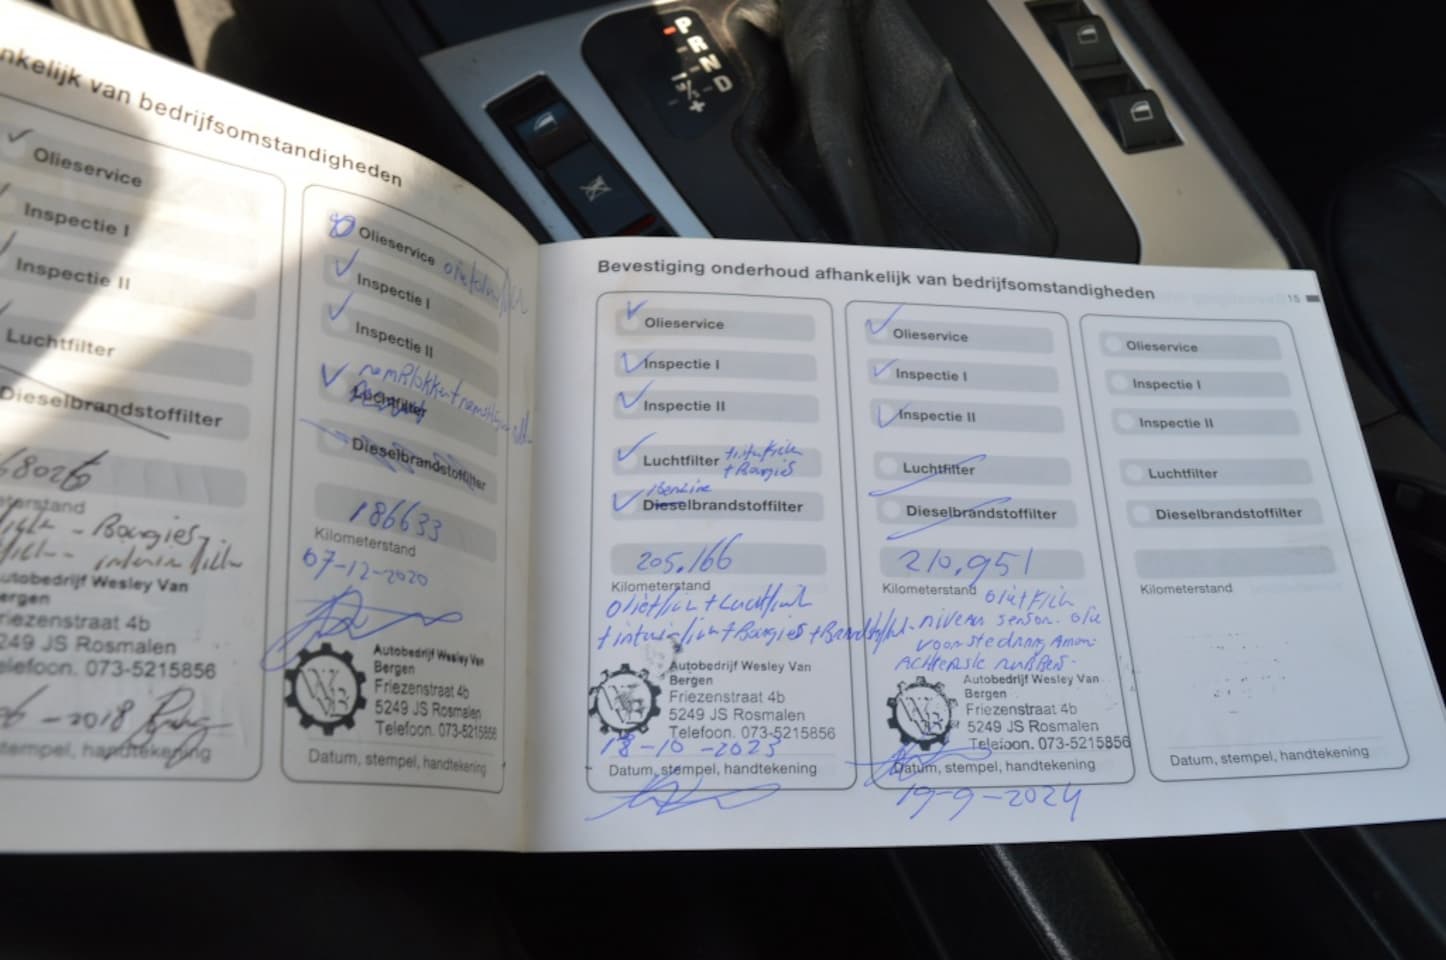 P
R
N
D
+
nkelijk van bedrijfsomstandigheden
Olieservice
Inspectie I
Inspectie II
Luchtfilter
Dieselbrandstoffilter
68026
terstand
- Bougies
utobedrijf Wesley Van
ergen
riezenstraat 4b
249 JS Rosmalen
elefoon. 073-5215856
-2018
stempel, handtekening
Olieservice
Inspectie I
Inspectie II
Luchtfilter
Dieselbrandstoffilter
186633
Kilometerstand
07-12-2020
Autobedrijf Wesley Van
Bergen
Friezenstraat 4b
5249 JS Rosmalen
Telefoon. 073-5215856
Datum, stempel, handtekening
Bevestiging onderhoud afhankelijk van bedrijfsomstandigheden
15
Olieservice
Inspectie I
Inspectie II
Luchtfilter
+ Bougies
benzine
Dieselbrandstoffilter
205.166
Kilometerstand
Autobedrijf Wesley Van
Bergen
Friezenstraat 4b
5249 JS Rosmalen
Telefoon. 073-5215856
18-10-2023
Datum, stempel, handtekening
Olieservice
Inspectie I
Inspectie II
Luchtfilter
Dieselbrandstoffilter
210.951
Kilometerstand
niveau sensor. olie
Autobedrijf Wesley Van
Bergen
Friezenstraat 4b
5249 JS Rosmalen
Telefoon. 073-5215856
Datum, stempel, handtekening
19-9-2024
Olieservice
Inspectie I
Inspectie II
Luchtfilter
Dieselbrandstoffilter
Kilometerstand
Datum, stempel, handtekening